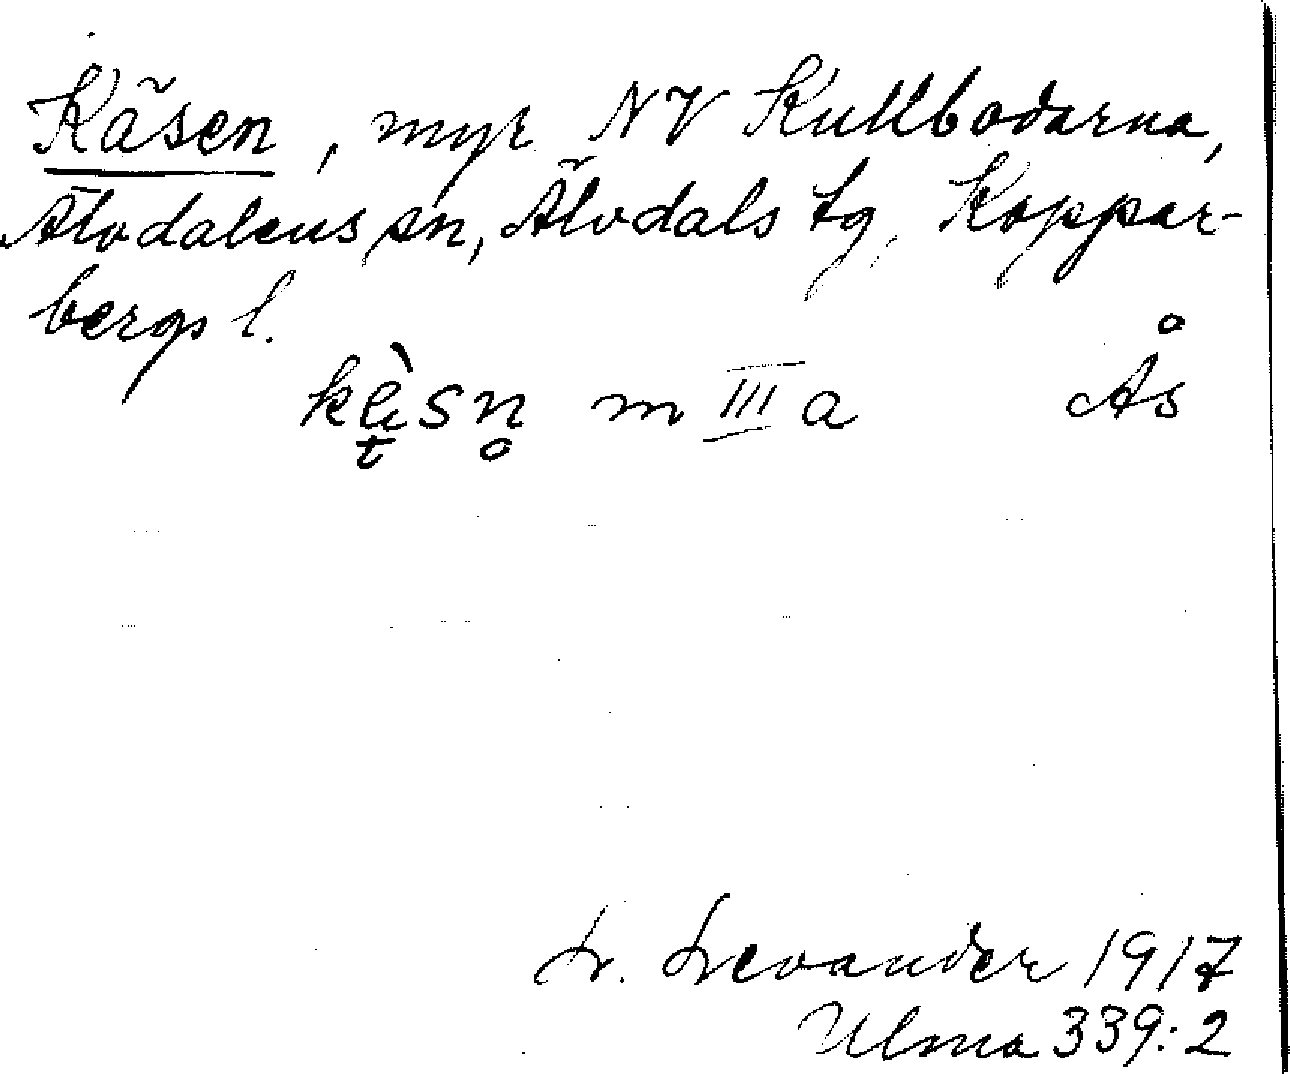 Käsen, myr NV Kullbodarna,
Älvdalens sn, Älvdals tg, Koppar-
bergs l.
m III a Ås
L. Levander 1917
Ulma 339:2